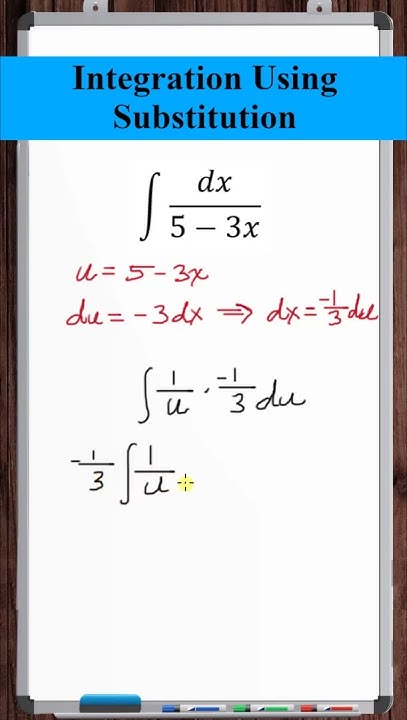 Integration Using
Substitution
∫ dx / (5 − 3x)
u = 5 - 3x
du = -3dx ⇒ dx = -1/3 du
∫ 1/u · -1/3 du
-1/3 ∫ 1/u